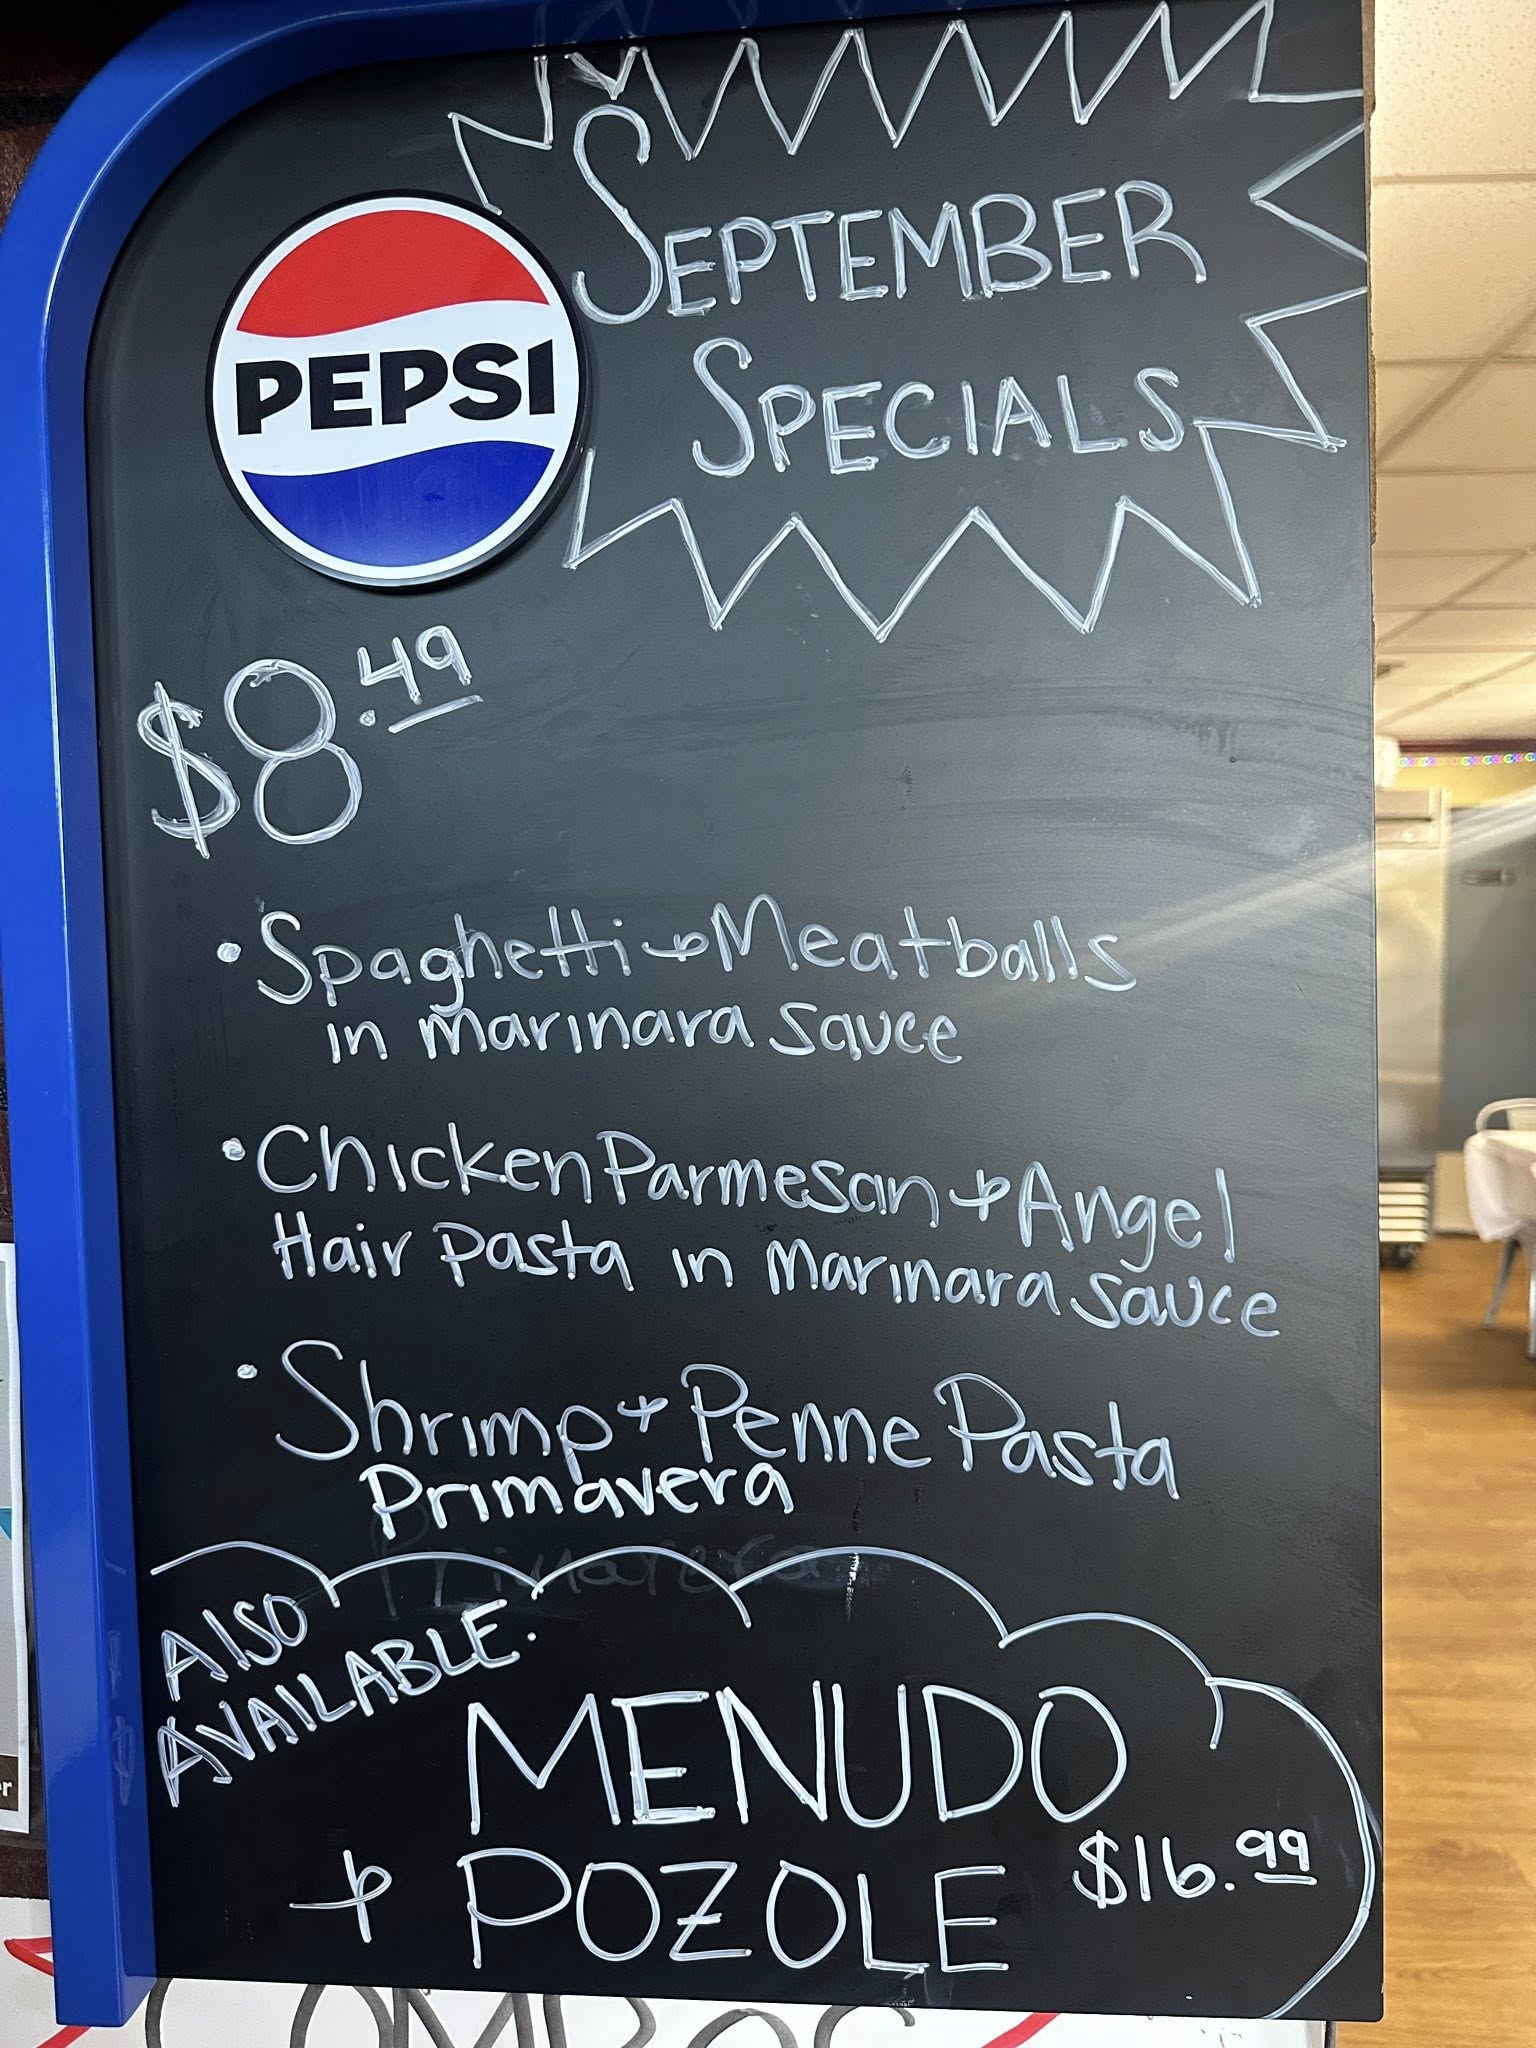 PEPSI
SEPTEMBER
SPECIALS
$8.49
• Spaghetti + Meatballs
in marinara sauce
• Chicken Parmesan + Angel
Hair pasta in marinara sauce
• Shrimp + Penne Pasta
Primavera
Primavera
ALSO
AVAILABLE:
MENUDO
+ POZOLE $16.99